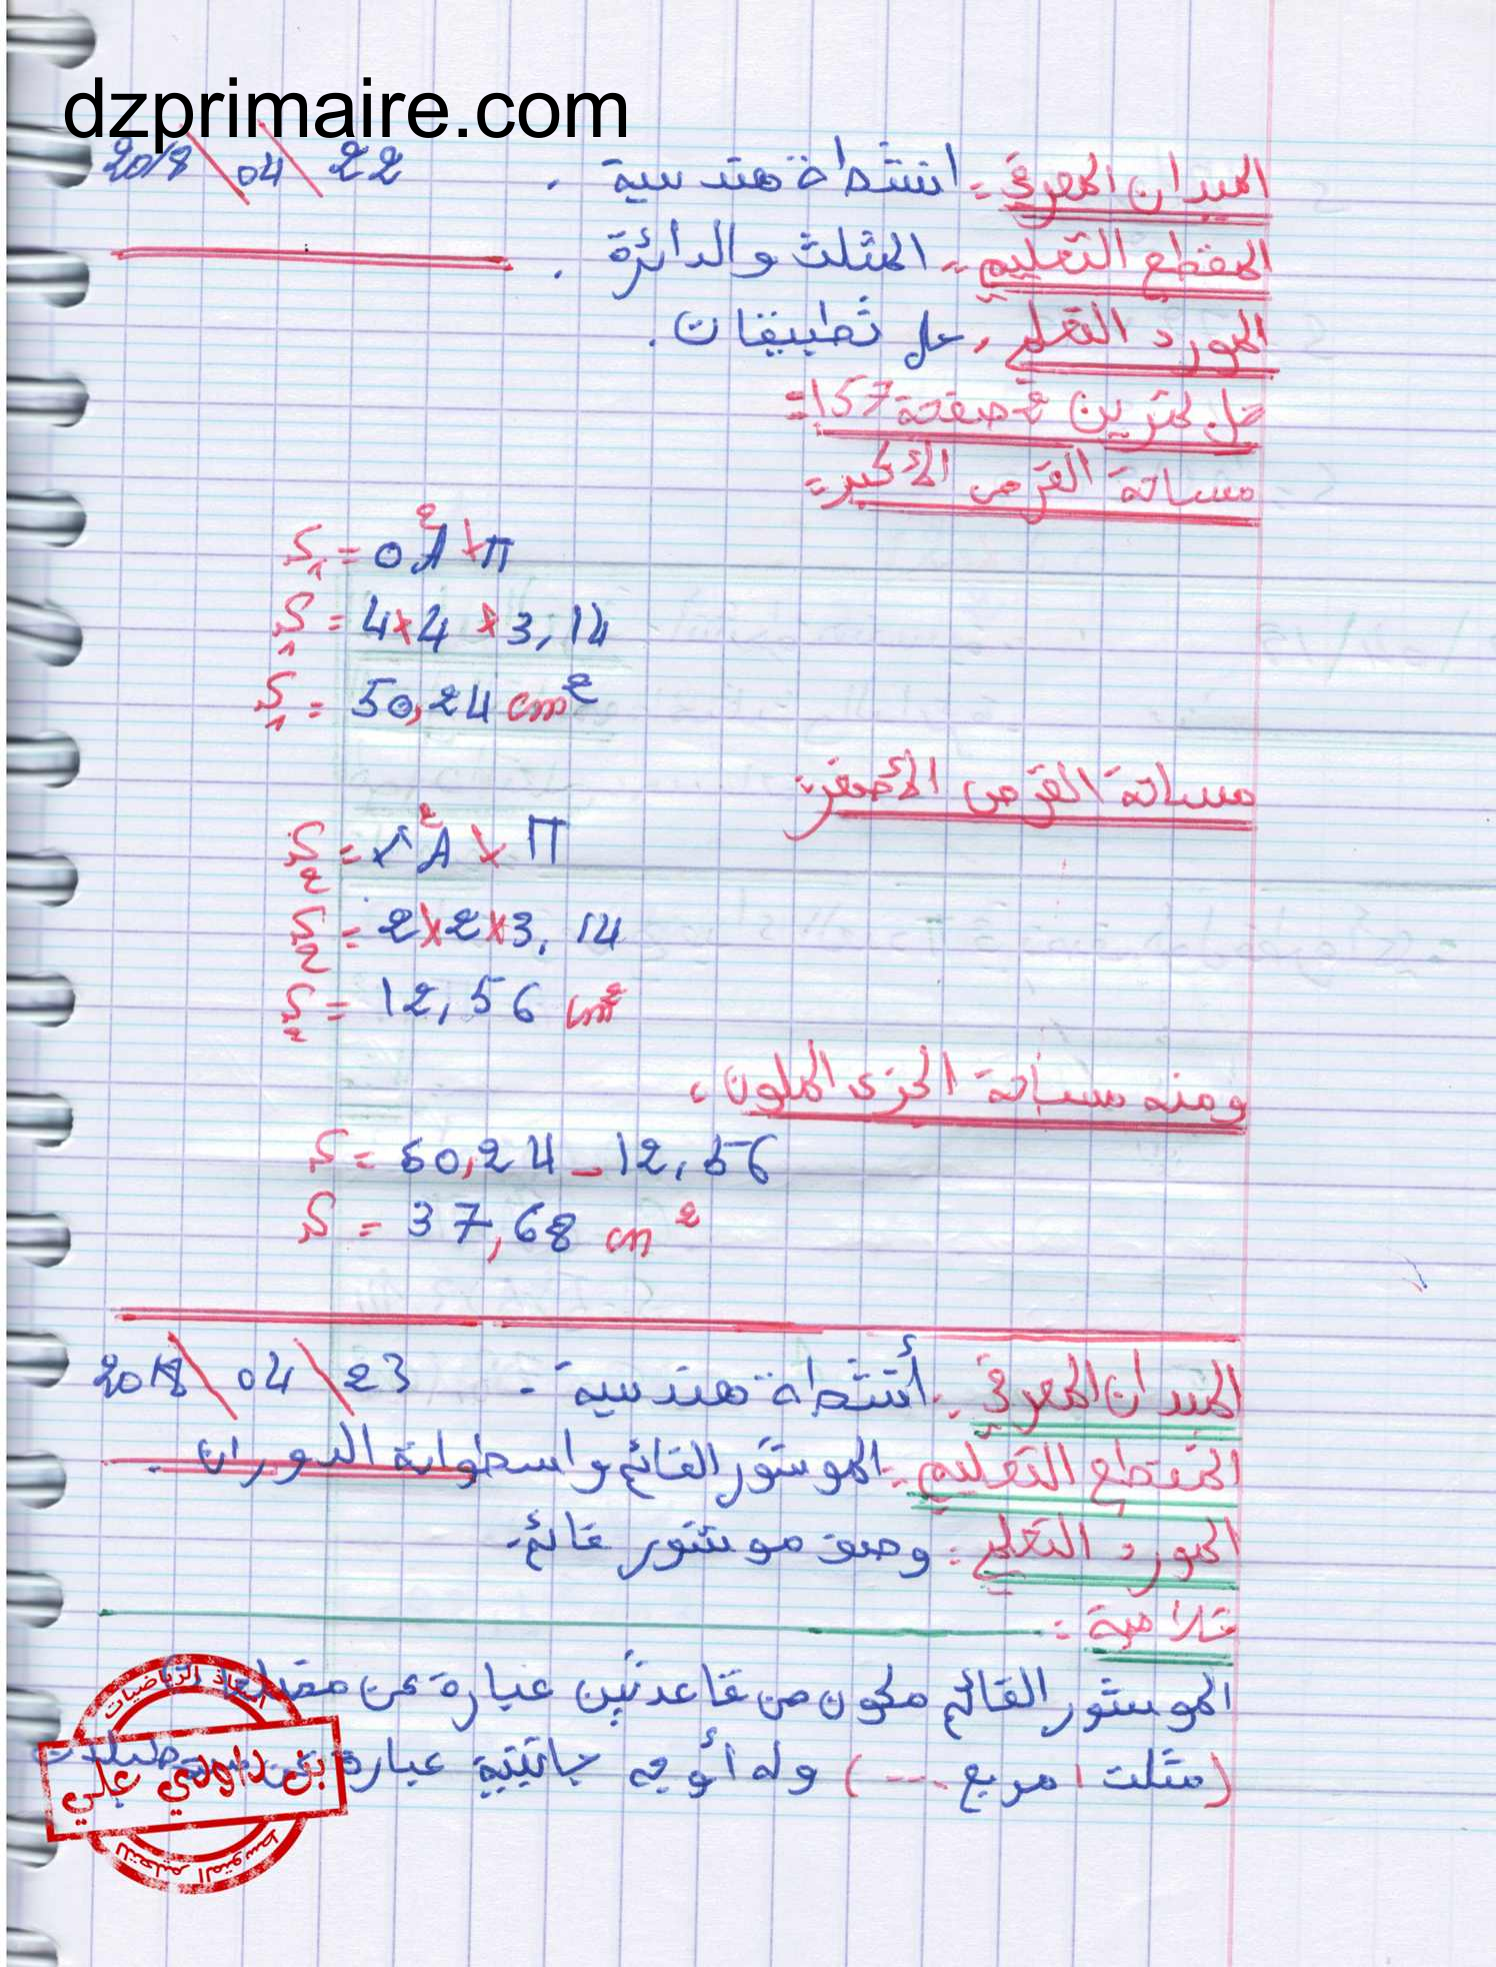 dzprimaire.com
الميدان المعرفي : انشطة هندسية . 22 / 04 / 2018
المقطع التعليمي : المثلث والدائرة .
المورد التعلمي : حل تطبيقات .
حل تمرين صفحة 157 :
مساحة القرص الأكبر :
S₁ = OA² × π
S₁ = 4 × 4 × 3,14
S₁ = 50,24 cm²
مساحة القرص الأصغر :
S₂ = A² × π
S₂ = 2 × 2 × 3,14
S₂ = 12,56 cm²
ومنه مساحة الجزء الملون :
S = 50,24 - 12,56
S = 37,68 cm²
الميدان المعرفي : أنشطة هندسية . 23 / 04 / 2018
المقطع التعليمي : الموشور القائم واسطوانة الدوران .
المورد التعلمي : وصف موشور قائم .
خلاصة :
الموشور القائم مكون من قاعدتين عبارة عن
(مثلث ، مربع ....) وله أوجه جانبية عبارة
أستاذ الرياضيات
بن داودي علي
للتعليم المتوسط